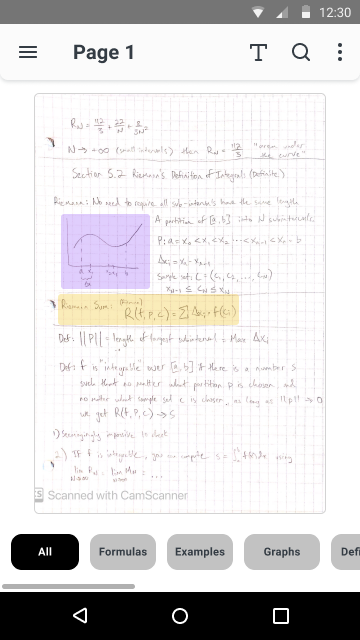 12:30
Page 1
R_N = 112/3 + 22/N + 8/3N²
N → +∞ (small intervals) then R_N = 112/3 "area under the curve"
Section 5.2 Riemann's Definition of Integrals (Definite)
Riemann: No need to require all sub-intervals have the same length
A partition of [a,b] into N subintervals
P: a = x₀ < x₁ < x₂ ... < x_{N-1} < x_N = b
Sample set: C = (C₁, C₂, ..., C_N)
x_{N-1} ≤ C_N ≤ x_N
Riemann Sum:
R(f, P, C) = ∑ Δx_i · f(C_i)
Def: ||P|| = length of largest subinterval = Max Δx_i
Def: f is "integrable" over [a,b] if there is a number S
such that no matter what partition P is chosen and
no matter what sample set C is chosen, as long as ||P|| → 0
we get R(f, P, C) → S
1) Seemingly impossible to check
2) If f is integrable, you can compute S = using
lim R_N = lim M_N = ...
CS Scanned with CamScanner
All
Formulas
Examples
Graphs
Defi